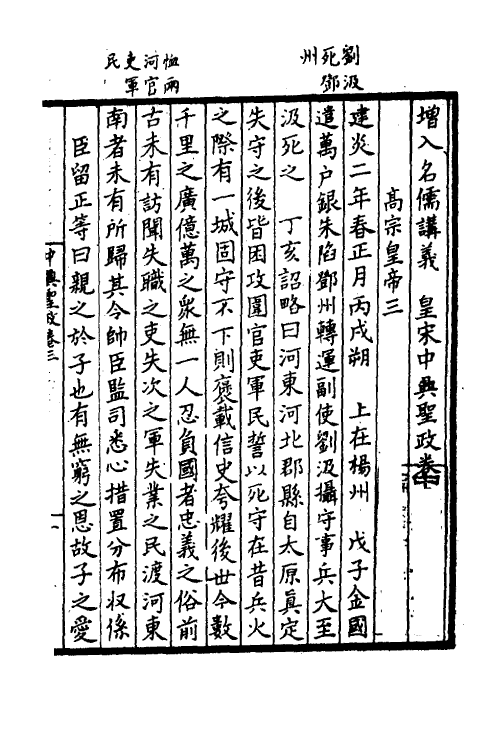 劉汲
死鄧
州
恤兩
河官
吏軍
民
增入名儒講義　皇宋中興聖政卷
高宗皇帝三
建炎二年春正月丙戌朔　上在楊州　戊子金國
遣萬戶銀朱陷鄧州轉運副使劉汲攝守事兵大至
汲死之　丁亥詔略曰河東河北郡縣自太原真定
失守之後皆困攻圍官吏軍民誓以死守在昔兵火
之際有一城固守不下則褒載信史夸耀後世今數
千里之廣億萬之衆無一人忍負國者忠義之俗前
古未有訪聞失職之吏失次之軍失業之民渡河東
南者未有所歸其令帥臣監司悉心措置分布收係
臣留正等曰親之於子也有無窮之恩故子之愛
中興聖政卷三